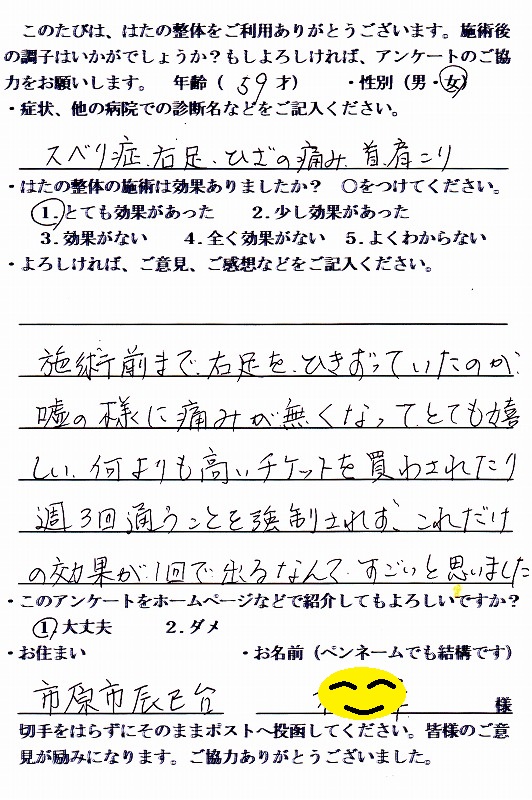 このたびは、はたの整体をご利用ありがとうございます。施術後
の調子はいかがでしょうか?もしよろしければ、アンケートのご協
力をお願いします。 年齢(59才) ・性別(男・女)
・症状、他の病院での診断名などをご記入ください。
スベリ症.右足.ひざの痛み.首肩こり
・はたの整体の施術は効果ありましたか? ○をつけてください。
1.とても効果があった 2.少し効果があった
3.効果がない 4.全く効果がない 5.よくわからない
・よろしければ、ご意見、ご感想などをご記入ください。
施術前まで.右足を.ひきずっていたのが、
嘘の様に痛みが無くなって.とても嬉
しい.何よりも高いチケットを買わされたり
週3回通うことを強制されず、これだけ
の効果が1回で出るなんて.すごいと思いました
・このアンケートをホームページなどで紹介してもよろしいですか?
1.大丈夫 2.ダメ
・お住まい ・お名前(ペンネームでも結構です)
市原市辰巳台 様
切手をはらずにそのままポストへ投函してください。皆様のご意
見が励みになります。ご協力ありがとうございました。